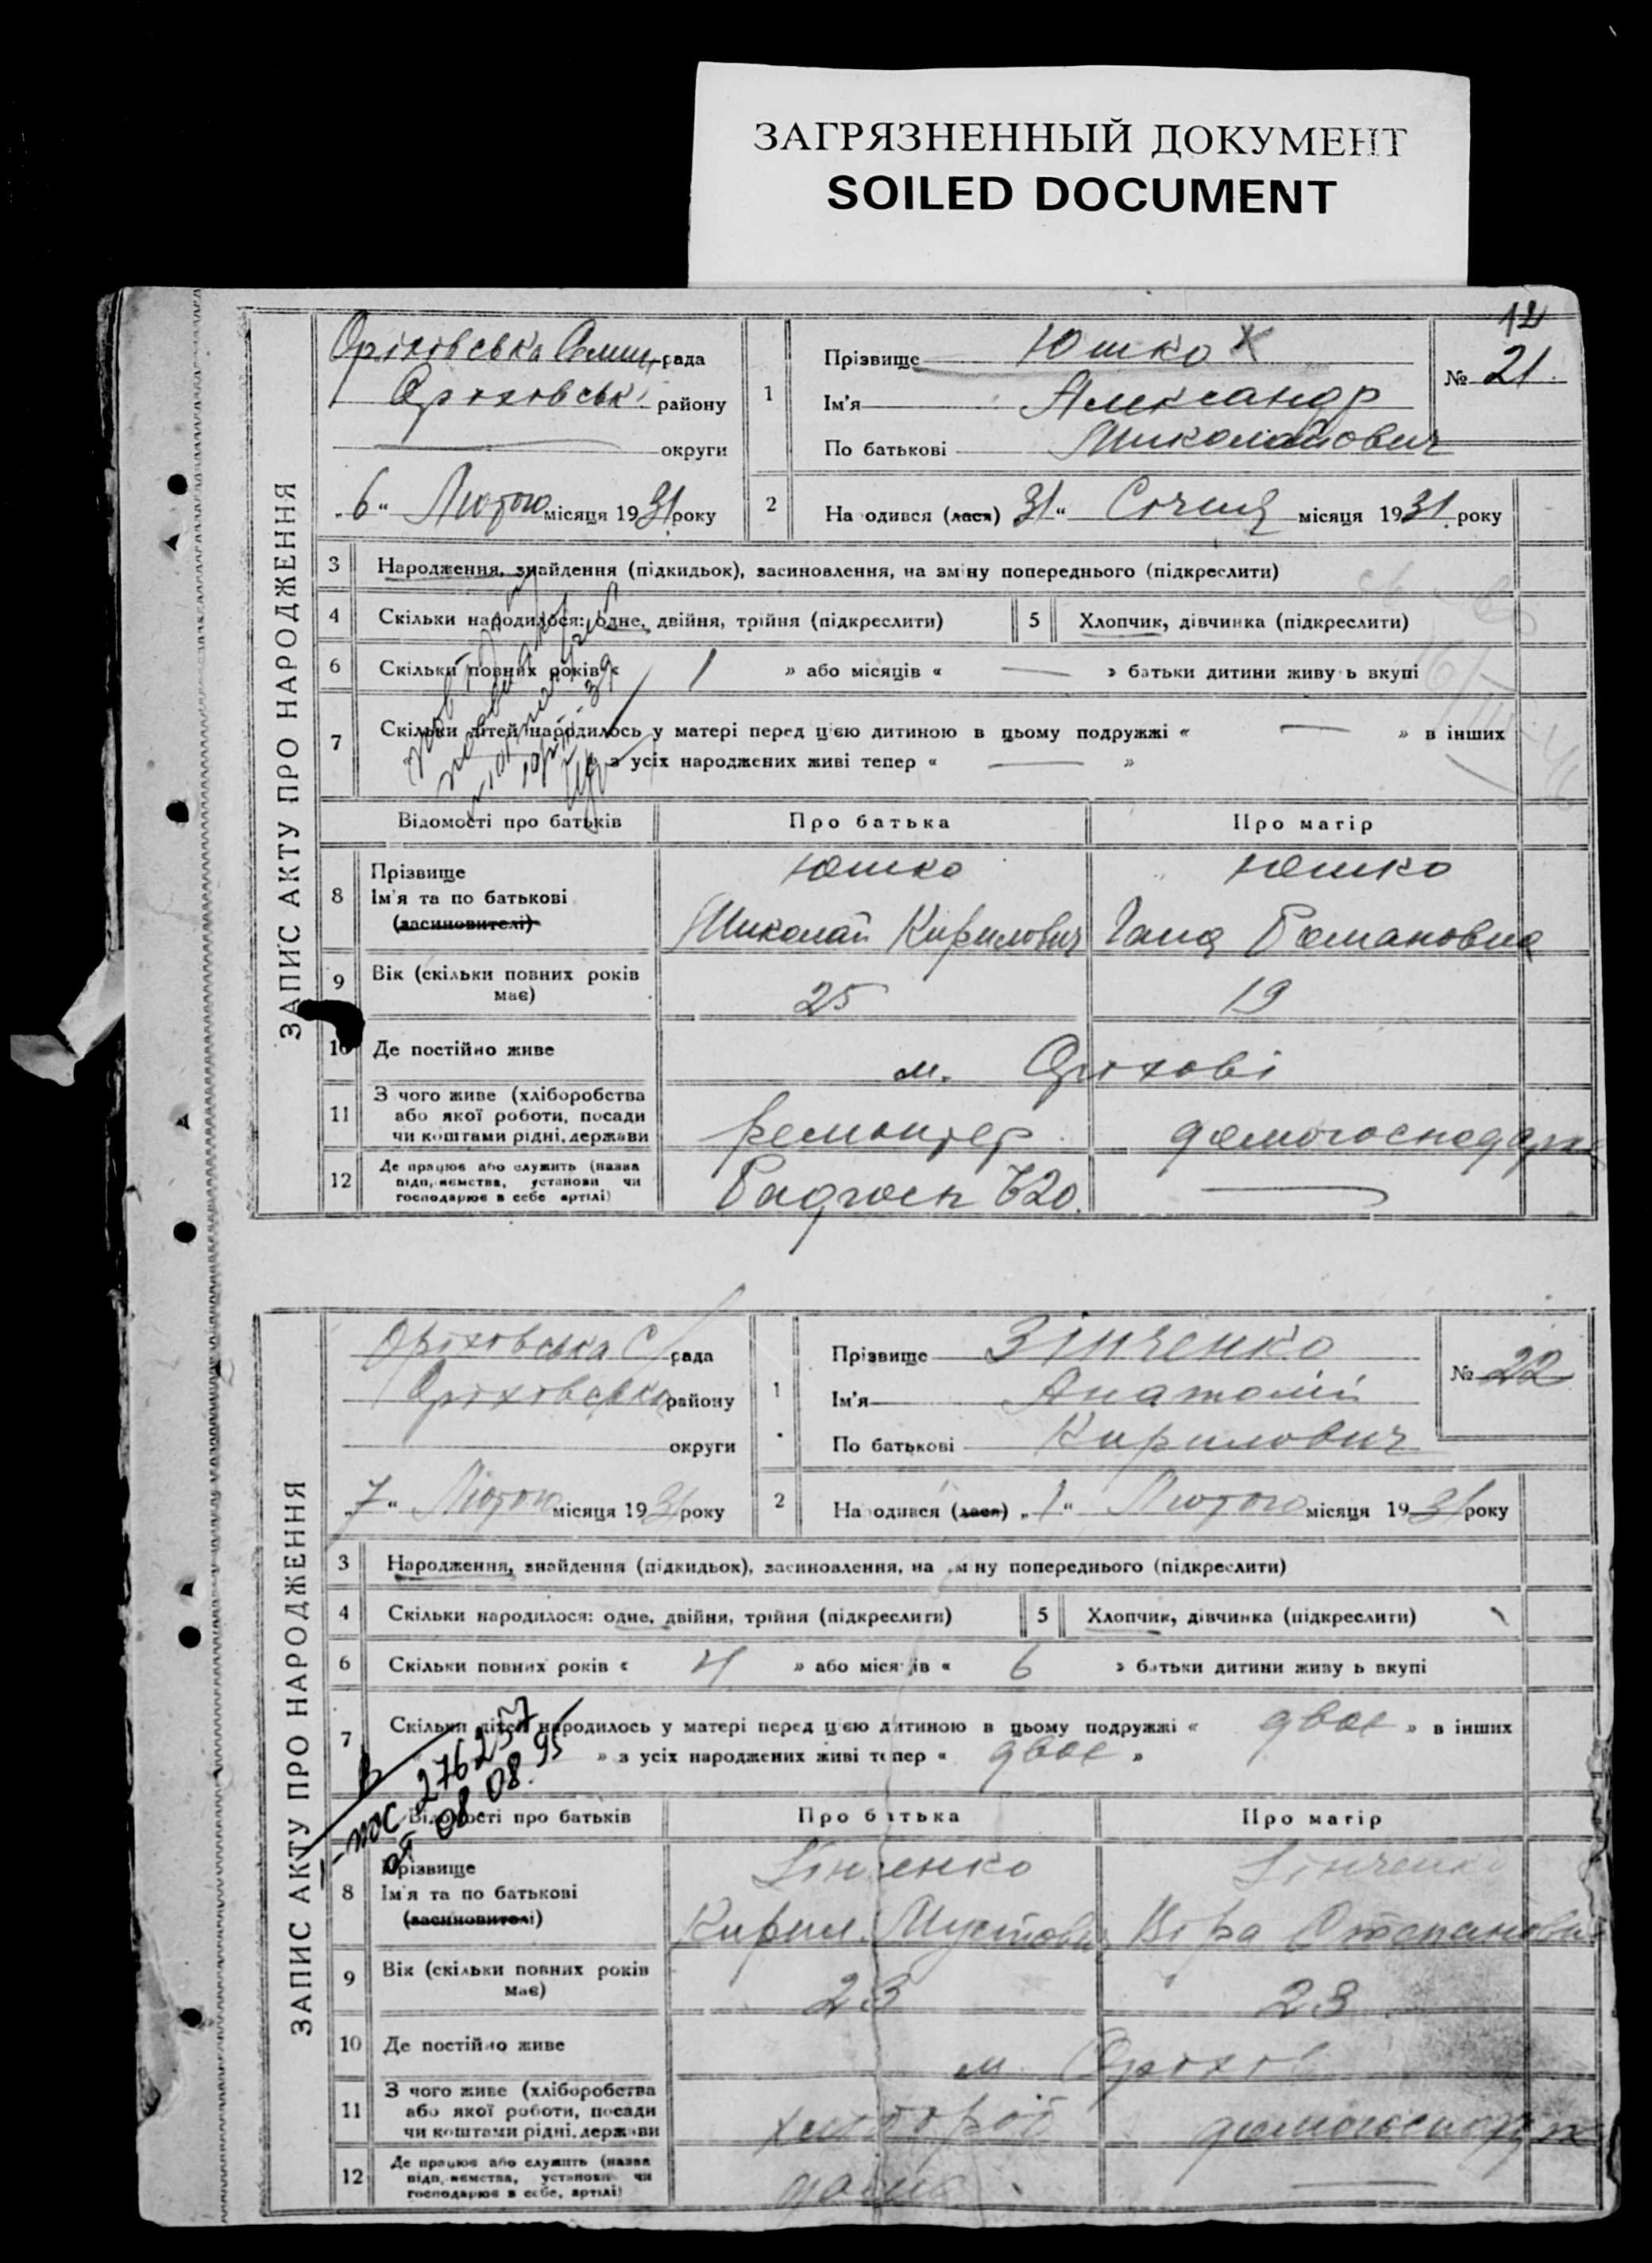 ЗАГРЯЗНЕННЫЙ ДОКУМЕНТ
SOILED DOCUMENT
12
ЗАПИС АКТУ ПРО НАРОДЖЕННЯ
Оріховська рада
Оріховськ. району
округи
„6“ Лютого місяця 1931 року
1
Прізвище Юшко х
Ім'я Александр
По батькові Миколайович
№ 21.
2
Народився (лася) 31“ Січня місяця 1931 року
3 Народження, знайдення (підкидьок), засиновлення, на зміну попереднього (підкреслити)
4 Скільки народилося: одне, двійня, трійня (підкреслити) 5 Хлопчик, дівчинка (підкреслити)
6 Скільки повних років « 1 » або місяців « — » батьки дитини живуть вкупі
7 Скільки дітей народилось у матері перед цією дитиною в цьому подружжі « — » в інших
з усіх народжених живі тепер « — »
Відомості про батьків Про батька Про матір
8 Прізвище Юшко Юшко
Ім'я та по батькові Миколай Кирилович Гана Романовна
(засиновителі)
9 Вік (скільки повних років має) 25 19
10 Де постійно живе м. Оріхові
11 З чого живе (хліборобства або якої роботи, посади чи коштами рідні, держави ремонтер домогосподарка
12 Де працює або служить (назва підприємства, установи чи господарює в себе артілі) Радгосп №20. —
ЗАПИС АКТУ ПРО НАРОДЖЕННЯ
Оріховська С/рада
Оріховська району
округи
„7“ Лютого місяця 1931 року
1
Прізвище Зінченко
Ім'я Анатолій
По батькові Кирилович
№ 22
2
Народився (лася) „1“ Лютого місяця 1931 року
3 Народження, знайдення (підкидьок), засиновлення, на зміну попереднього (підкреслити)
4 Скільки народилося: одне, двійня, трійня (підкреслити) 5 Хлопчик, дівчинка (підкреслити)
6 Скільки повних років « 4 » або місяців « 6 » батьки дитини живуть вкупі
7 Скільки дітей народилось у матері перед цією дитиною в цьому подружжі « двое » в інших
» з усіх народжених живі тепер « двое »
276257
08.08.95
Відомості про батьків Про батька Про матір
8 Прізвище Зінченко Зінченко
Ім'я та по батькові Кирил Віра Степановна
(засиновителі)
9 Вік (скільки повних років має) 23 23
10 Де постійно живе м. Оріхов
11 З чого живе (хліборобства або якої роботи, посади чи коштами рідні, держави хлібороб домогосподарк
12 Де працює або служить (назва підприємства, установи чи господарює в себе, артілі) —